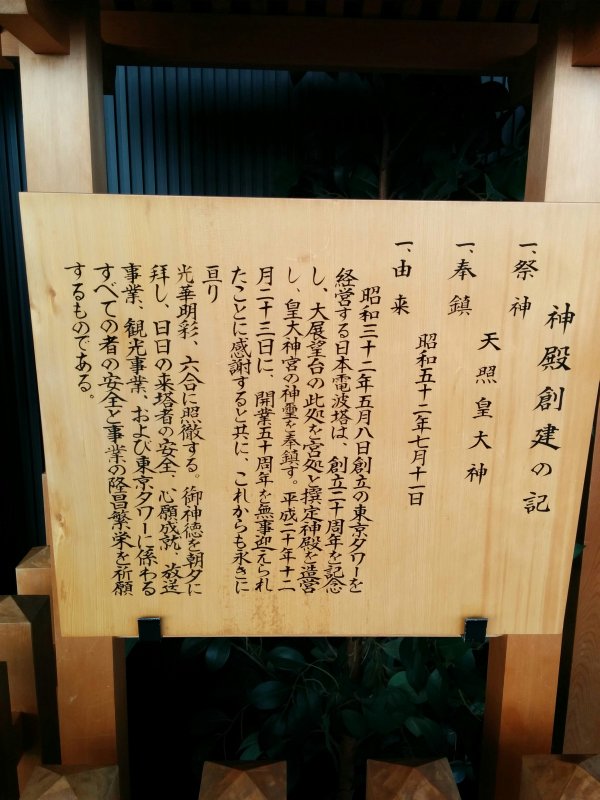 神殿創建の記
一、祭神
天照皇大神
一、奉鎮
昭和五十二年七月十一日
一、由来
昭和三十二年五月八日創立の東京タワーを
経営する日本電波塔は、創立二十周年を記念
し、大展望台の此処を宮処と撰定神殿を造営
し、皇大神宮の神璽を奉鎮す。平成二十年十二
月二十三日に、開業五十周年を無事迎えられ
たことに感謝すると共に、これからも永きに
亘り
光華明彩、六合に照徹する。御神徳を朝夕に
拝し、日日の来塔者の安全、心願成就、放送
事業、観光事業、および東京タワーに係わる
すべての者の安全と事業の隆昌繁栄を祈願
するものである。